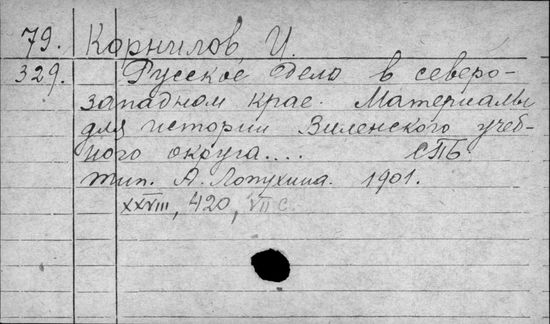 79. Корнилов И.
329. Русское дело в северо-
западном крае. Материалы
для истории Виленского учеб-
ного округа.... СПБ.
тип. А. Лопухина. 1901.
XXVIII, 420, VII с.